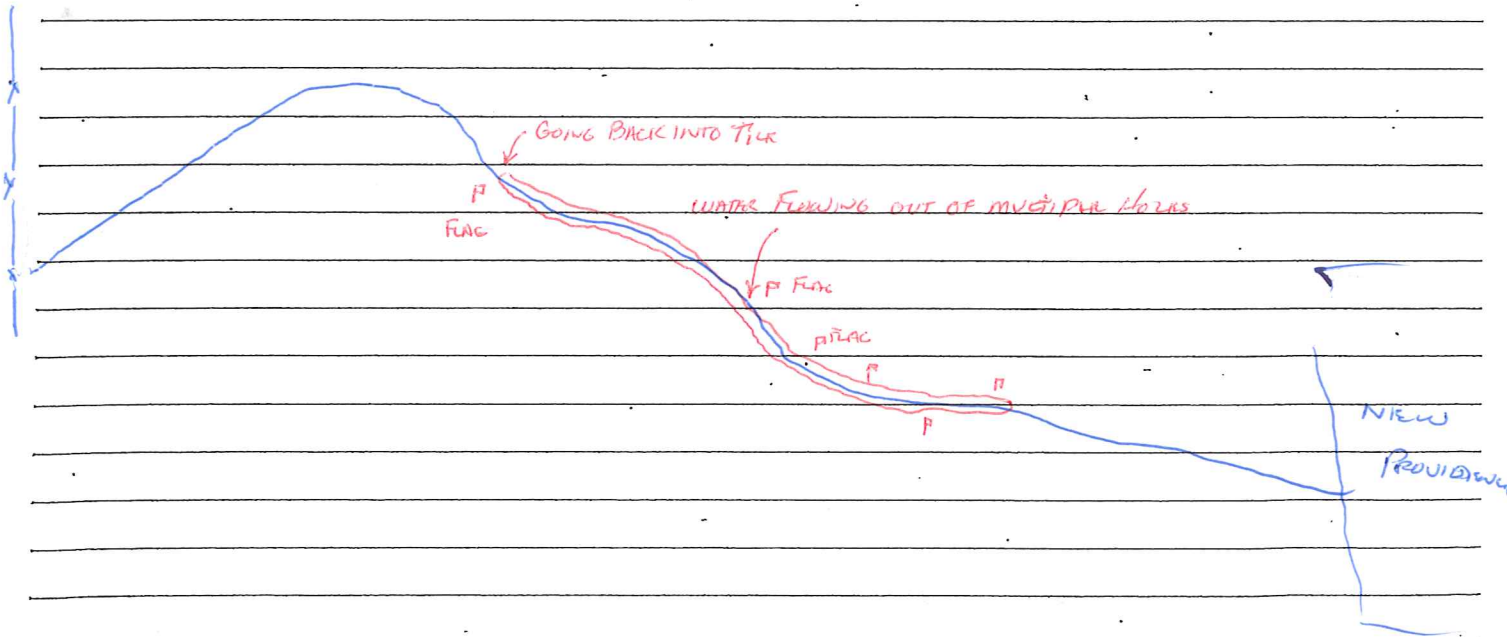 GOING BACK INTO TILE
FLAG
WATER FLOWING OUT OF MULTIPLE HOLES
FLAG
FLAG
NEW
PROVIDENCE